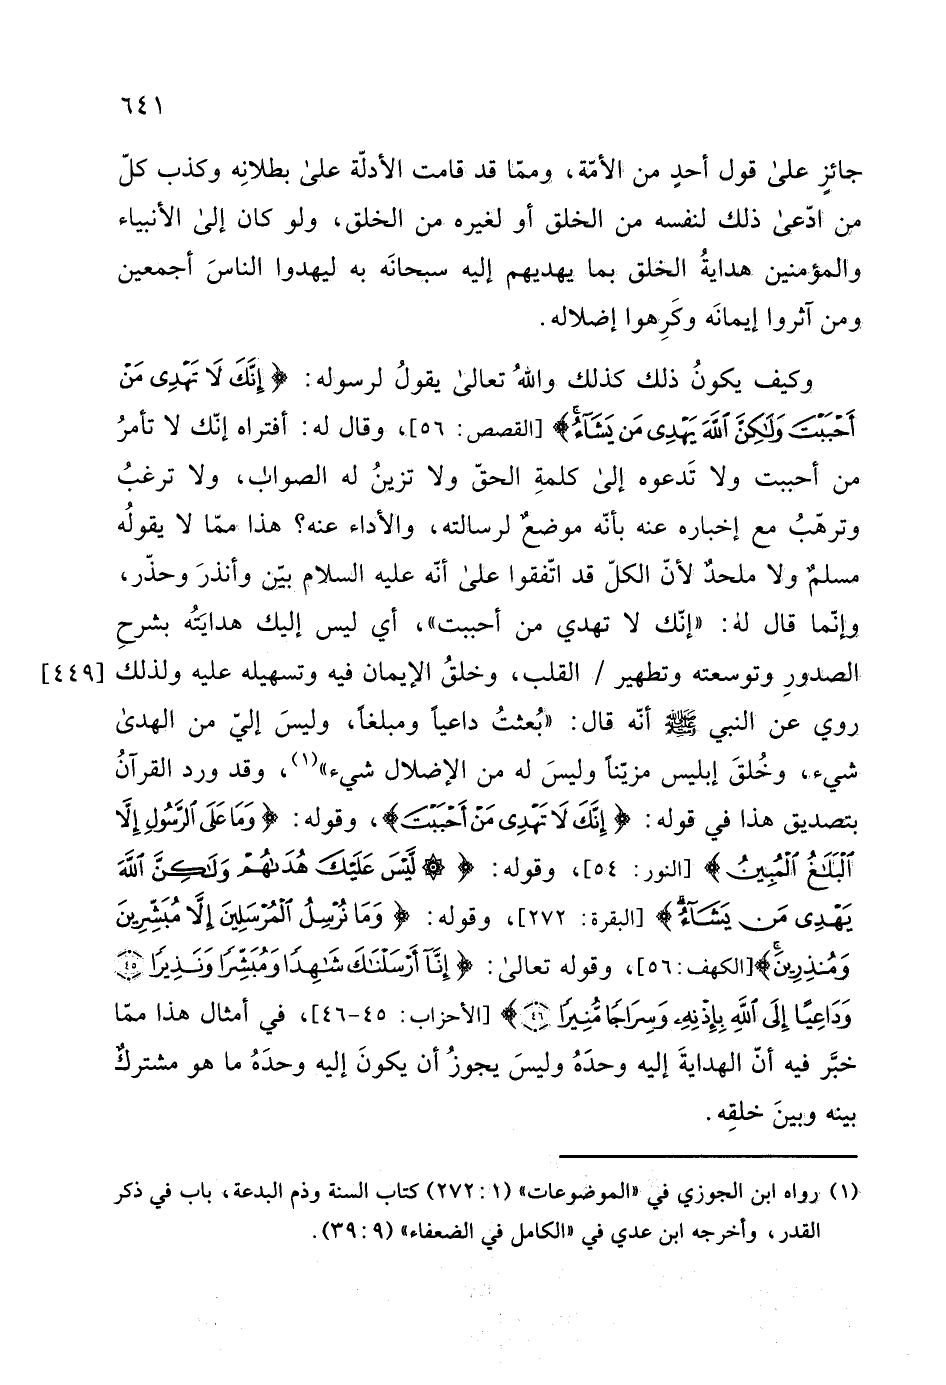 ٦٤١
جائزٍ علىٰ قول أحدٍ من الأمّة، وممّا قد قامت الأدلّة علىٰ بطلانِه وكذب كلّ
من ادّعىٰ ذلك لنفسه من الخلق أو لغيره من الخلق، ولو كان إلىٰ الأنبياء
والمؤمنين هدايةُ الخلق بما يهديهم إليه سبحانَه به ليهدوا الناسَ أجمعين
ومن آثروا إيمانَه وكَرِهوا إضلاله.
وكيف يكونُ ذلك كذلك واللهُ تعالىٰ يقولُ لرسوله: ﴿إِنَّكَ لَا تَهْدِى مَنْ
أَحْبَبْتَ وَلَٰكِنَّ ٱللَّهَ يَهْدِى مَن يَشَآءُۚ﴾ [القصص: ٥٦]، وقال له: أفتراه إنّك لا تأمرُ
من أحببت ولا تَدعوه إلىٰ كلمةِ الحقّ ولا تزينُ له الصواب، ولا ترغبُ
وترهّبُ مع إخباره عنه بأنّه موضعٌ لرسالته، والأداء عنه؟ هذا ممّا لا يقولُه
مسلمٌ ولا ملحدٌ لأنّ الكلّ قد اتّفقوا علىٰ أنّه عليه السلام بيّن وأنذرَ وحذّر،
وإنّما قال له: «إنّك لا تهدي من أحببت»، أي ليس إليك هدايَتُه بشرحِ
الصدورِ وتوسعته وتطهير / القلب، وخلقُ الإيمان فيه وتسهيله عليه ولذلك [٤٤٩]
روي عن النبي ﷺ أنّه قال: «بُعثتُ داعياً ومبلغاً، وليسَ إليّ من الهدىٰ
شيء، وخُلقَ إبليس مزيّناً وليسَ له من الإضلال شيء»(١)، وقد ورد القرآنُ
بتصديق هذا في قوله: ﴿إِنَّكَ لَا تَهْدِى مَنْ أَحْبَبْتَ﴾، وقوله: ﴿وَمَا عَلَى ٱلرَّسُولِ إِلَّا
ٱلْبَلَٰغُ ٱلْمُبِينُ﴾ [النور: ٥٤]، وقوله: ﴿۞ لَّيْسَ عَلَيْكَ هُدَىٰهُمْ وَلَٰكِنَّ ٱللَّهَ
يَهْدِى مَن يَشَآءُۗ﴾ [البقرة: ٢٧٢]، وقوله: ﴿وَمَا نُرْسِلُ ٱلْمُرْسَلِينَ إِلَّا مُبَشِّرِينَ
وَمُنذِرِينَۚ﴾ [الكهف: ٥٦]، وقوله تعالىٰ: ﴿إِنَّآ أَرْسَلْنَٰكَ شَٰهِدًا وَمُبَشِّرًا وَنَذِيرًا ٤٥
وَدَاعِيًا إِلَى ٱللَّهِ بِإِذْنِهِۦ وَسِرَاجًا مُّنِيرًا ٤٦﴾ [الأحزاب: ٤٥-٤٦]، في أمثال هذا ممّا
خبَّر فيه أنّ الهدايةَ إليه وحدَهُ وليسَ يجوزُ أن يكونَ إليه وحدَهُ ما هو مشتركٌ
بينه وبينَ خلقِه.
(١) رواه ابن الجوزي في «الموضوعات» (١: ٢٧٢) كتاب السنة وذم البدعة، باب في ذكر
القدر، وأخرجه ابن عدي في «الكامل في الضعفاء» (٩: ٣٩).